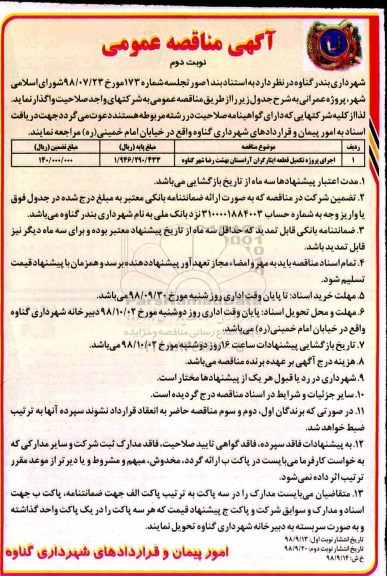 آگهی مناقصه عمومی
نوبت دوم
شهرداری بندر گناوه در نظر دارد به استناد بند ۱ صورتجلسه شماره ۱۷۳ مورخ ۹۸/۰۷/۲۳ شورای اسلامی
شهر، پروژه عمرانی به شرح جدول زیر را از طریق مناقصه عمومی به شرکتهای واجد صلاحیت واگذار نماید.
لذا از کلیه شرکتهایی که دارای گواهینامه صلاحیت در رشته مربوطه هستند دعوت می گردد جهت دریافت
اسناد به امور پیمان و قراردادهای شهرداری گناوه واقع در خیابان امام خمینی (ره) مراجعه نمایند.
ردیف موضوع مناقصه مبلغ پایه (ریال) مبلغ تضمین (ریال)
۱ اجرای پروژه تکمیل قطعه ایثارگران آرامستان بهشت رضا شهر گناوه ۱/۹۴۶/۲۹۰/۴۳۳ ۱۴۰/۰۰۰/۰۰۰
۱. مدت اعتبار پیشنهادها سه ماه از تاریخ بازگشایی می‌باشد.
۲. تضمین شرکت در مناقصه که به صورت ارائه ضمانتنامه بانکی معتبر به مبلغ درج شده در جدول فوق
یا واریز وجه به شماره حساب ۳۱۰۰۰۰۱۸۸۴۰۰۳ نزد بانک ملی به نام شهرداری بندر گناوه می‌باشد.
۳. ضمانتنامه بانکی قابل تمدید که حداقل سه ماه از تاریخ پیشنهاد معتبر بوده و برای سه ماه دیگر نیز
قابل تمدید باشد.
۴. تمام اسناد مناقصه باید به مهر و امضاء مجاز تعهدآور پیشنهاددهنده برسد و همزمان با پیشنهاد قیمت
تسلیم شود.
۵. مهلت خرید اسناد: تا پایان وقت اداری روز شنبه مورخ ۹۸/۰۹/۳۰ می‌باشد.
۶. مهلت و محل تحویل اسناد: پایان وقت اداری روز دوشنبه مورخ ۹۸/۱۰/۰۲ دبیرخانه شهرداری گناوه
واقع در خیابان امام خمینی (ره) می‌باشد.
۷. تاریخ بازگشایی پیشنهادات ساعت ۱۶ روز دوشنبه مورخ ۹۸/۱۰/۰۲ می‌باشد.
۸. هزینه درج آگهی بر عهده برنده مناقصه می‌باشد.
۹. شهرداری در رد یا قبول هر یک از پیشنهادها مختار است.
۱۰. سایر جزئیات و شرایط در اسناد مناقصه درج گردیده است.
۱۱. در صورتی که برندگان اول، دوم و سوم مناقصه حاضر به انعقاد قرارداد نشوند سپرده آنها به ترتیب
ضبط خواهد شد.
۱۲. به پیشنهادات فاقد سپرده، فاقد گواهی تایید صلاحیت، فاقد مدارک ثبت شرکت و سایر مدارکی که
به خواست کارفرما می‌بایست در پاکت ب ارائه گردد، مخدوش، مبهم و مشروط و یا دیرتر از موعد مقرر
ترتیب اثر داده نمی‌شود.
۱۳. متقاضیان می‌بایست مدارک را در سه پاکت به ترتیب پاکت الف جهت ضمانتنامه، پاکت ب جهت
اسناد و مدارک و سوابق شرکت و پاکت ج پیشنهاد قیمت که هر سه پاکت را در یک پاکت واحد گذاشته
و به صورت سربسته به دبیرخانه شهرداری گناوه تحویل نمایند.
تاریخ انتشار نوبت اول: ۹۸/۹/۱۳
تاریخ انتشار نوبت دوم: ۹۸/۹/۲۰
خ ش: ۹۸/۹/۱۴
امور پیمان و قراردادهای شهرداری گناوه